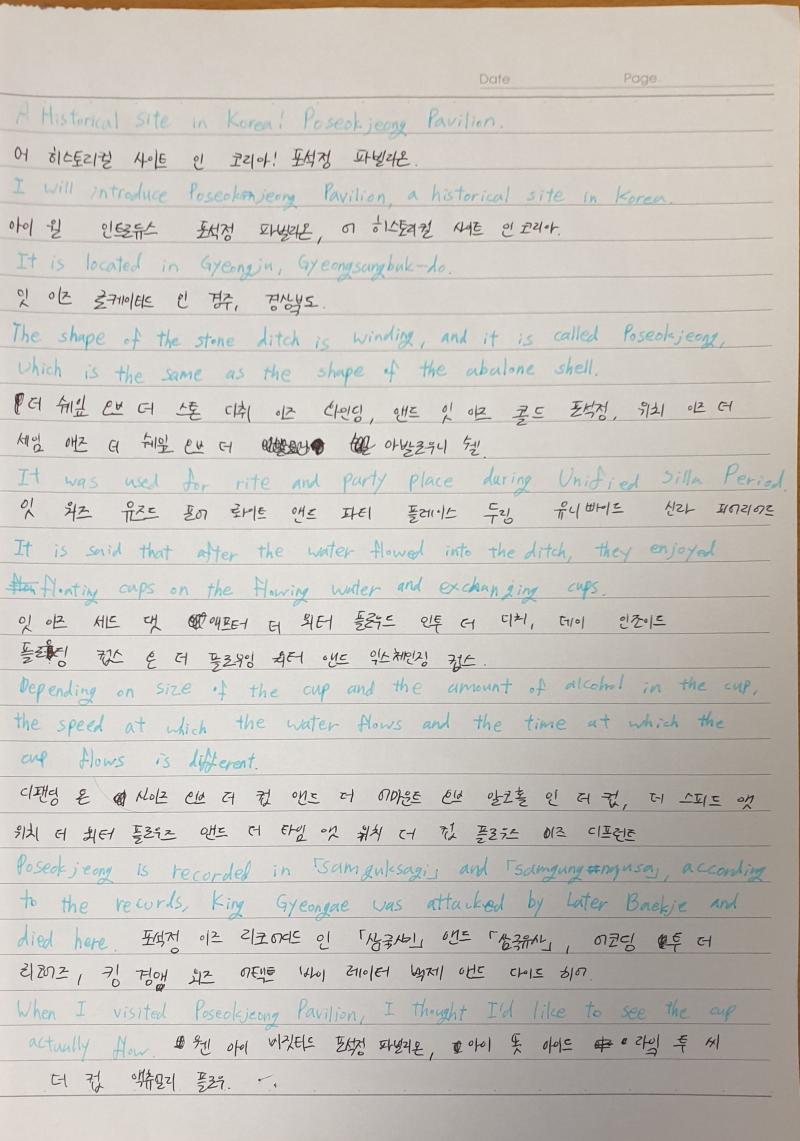 Date
Page
A Historical site in Korea! Poseokjeong Pavilion.
어 히스토리컬 사이트 인 코리아! 포석정 파빌리온.
I will introduce Poseokjeong Pavilion, a historical site in Korea.
아이 윌 인트로듀스 포석정 파빌리온, 어 히스토리컬 사이트 인 코리아.
It is located in Gyeongju, Gyeongsangbuk-do.
잇 이즈 로케이티드 인 경주, 경상북도.
The shape of the stone ditch is winding, and it is called Poseokjeong,
which is the same as the shape of the abalone shell.
더 쉐잎 오브 더 스톤 디취 이즈 와인딩, 앤드 잇 이즈 콜드 포석정, 위치 이즈 더
세임 애즈 더 쉐잎 오브 더 아발로우니 쉘.
It was used for rite and party place during Unified Silla Period.
잇 워즈 유즈드 포어 라이트 앤드 파티 플레이스 두링 유니빠이드 신라 피어리어드
It is said that after the water flowed into the ditch, they enjoyed
floating cups on the flowing water and exchanging cups.
잇 이즈 세드 댓 애프터 더 워터 플로우드 인투 더 디치, 데이 인조이드
플로팅 컵스 온 더 플로우잉 워터 앤드 익스체인징 컵스.
Depending on size of the cup and the amount of alcohol in the cup,
the speed at which the water flows and the time at which the
cup flows is different.
디팬딩 온 사이즈 오브 더 컵 앤드 더 어마운트 오브 알코홀 인 더 컵, 더 스피드 앳
위치 더 워터 플로우즈 앤드 더 타임 앳 위치 더 컵 플로우스 이즈 디프런트
Poseokjeong is recorded in 「samguksagi」 and 「samgungnyusa」, according
to the records, King Gyeongae was attacked by Later Baekje and
died here. 포석정 이즈 리코어디드 인 「삼국사기」 앤드 「삼국유사」, 어코딩 투 더
리코어즈, 킹 경앱 워즈 어택트 바이 레이터 백제 앤드 다이드 히어.
When I visited Poseokjeong Pavilion, I thought I'd like to see the cup
actually flow. 웬 아이 비짓티드 포석정 파빌리온, 아이 똣 아이드 라익 투 씨
더 컵 액츄얼리 플로우.